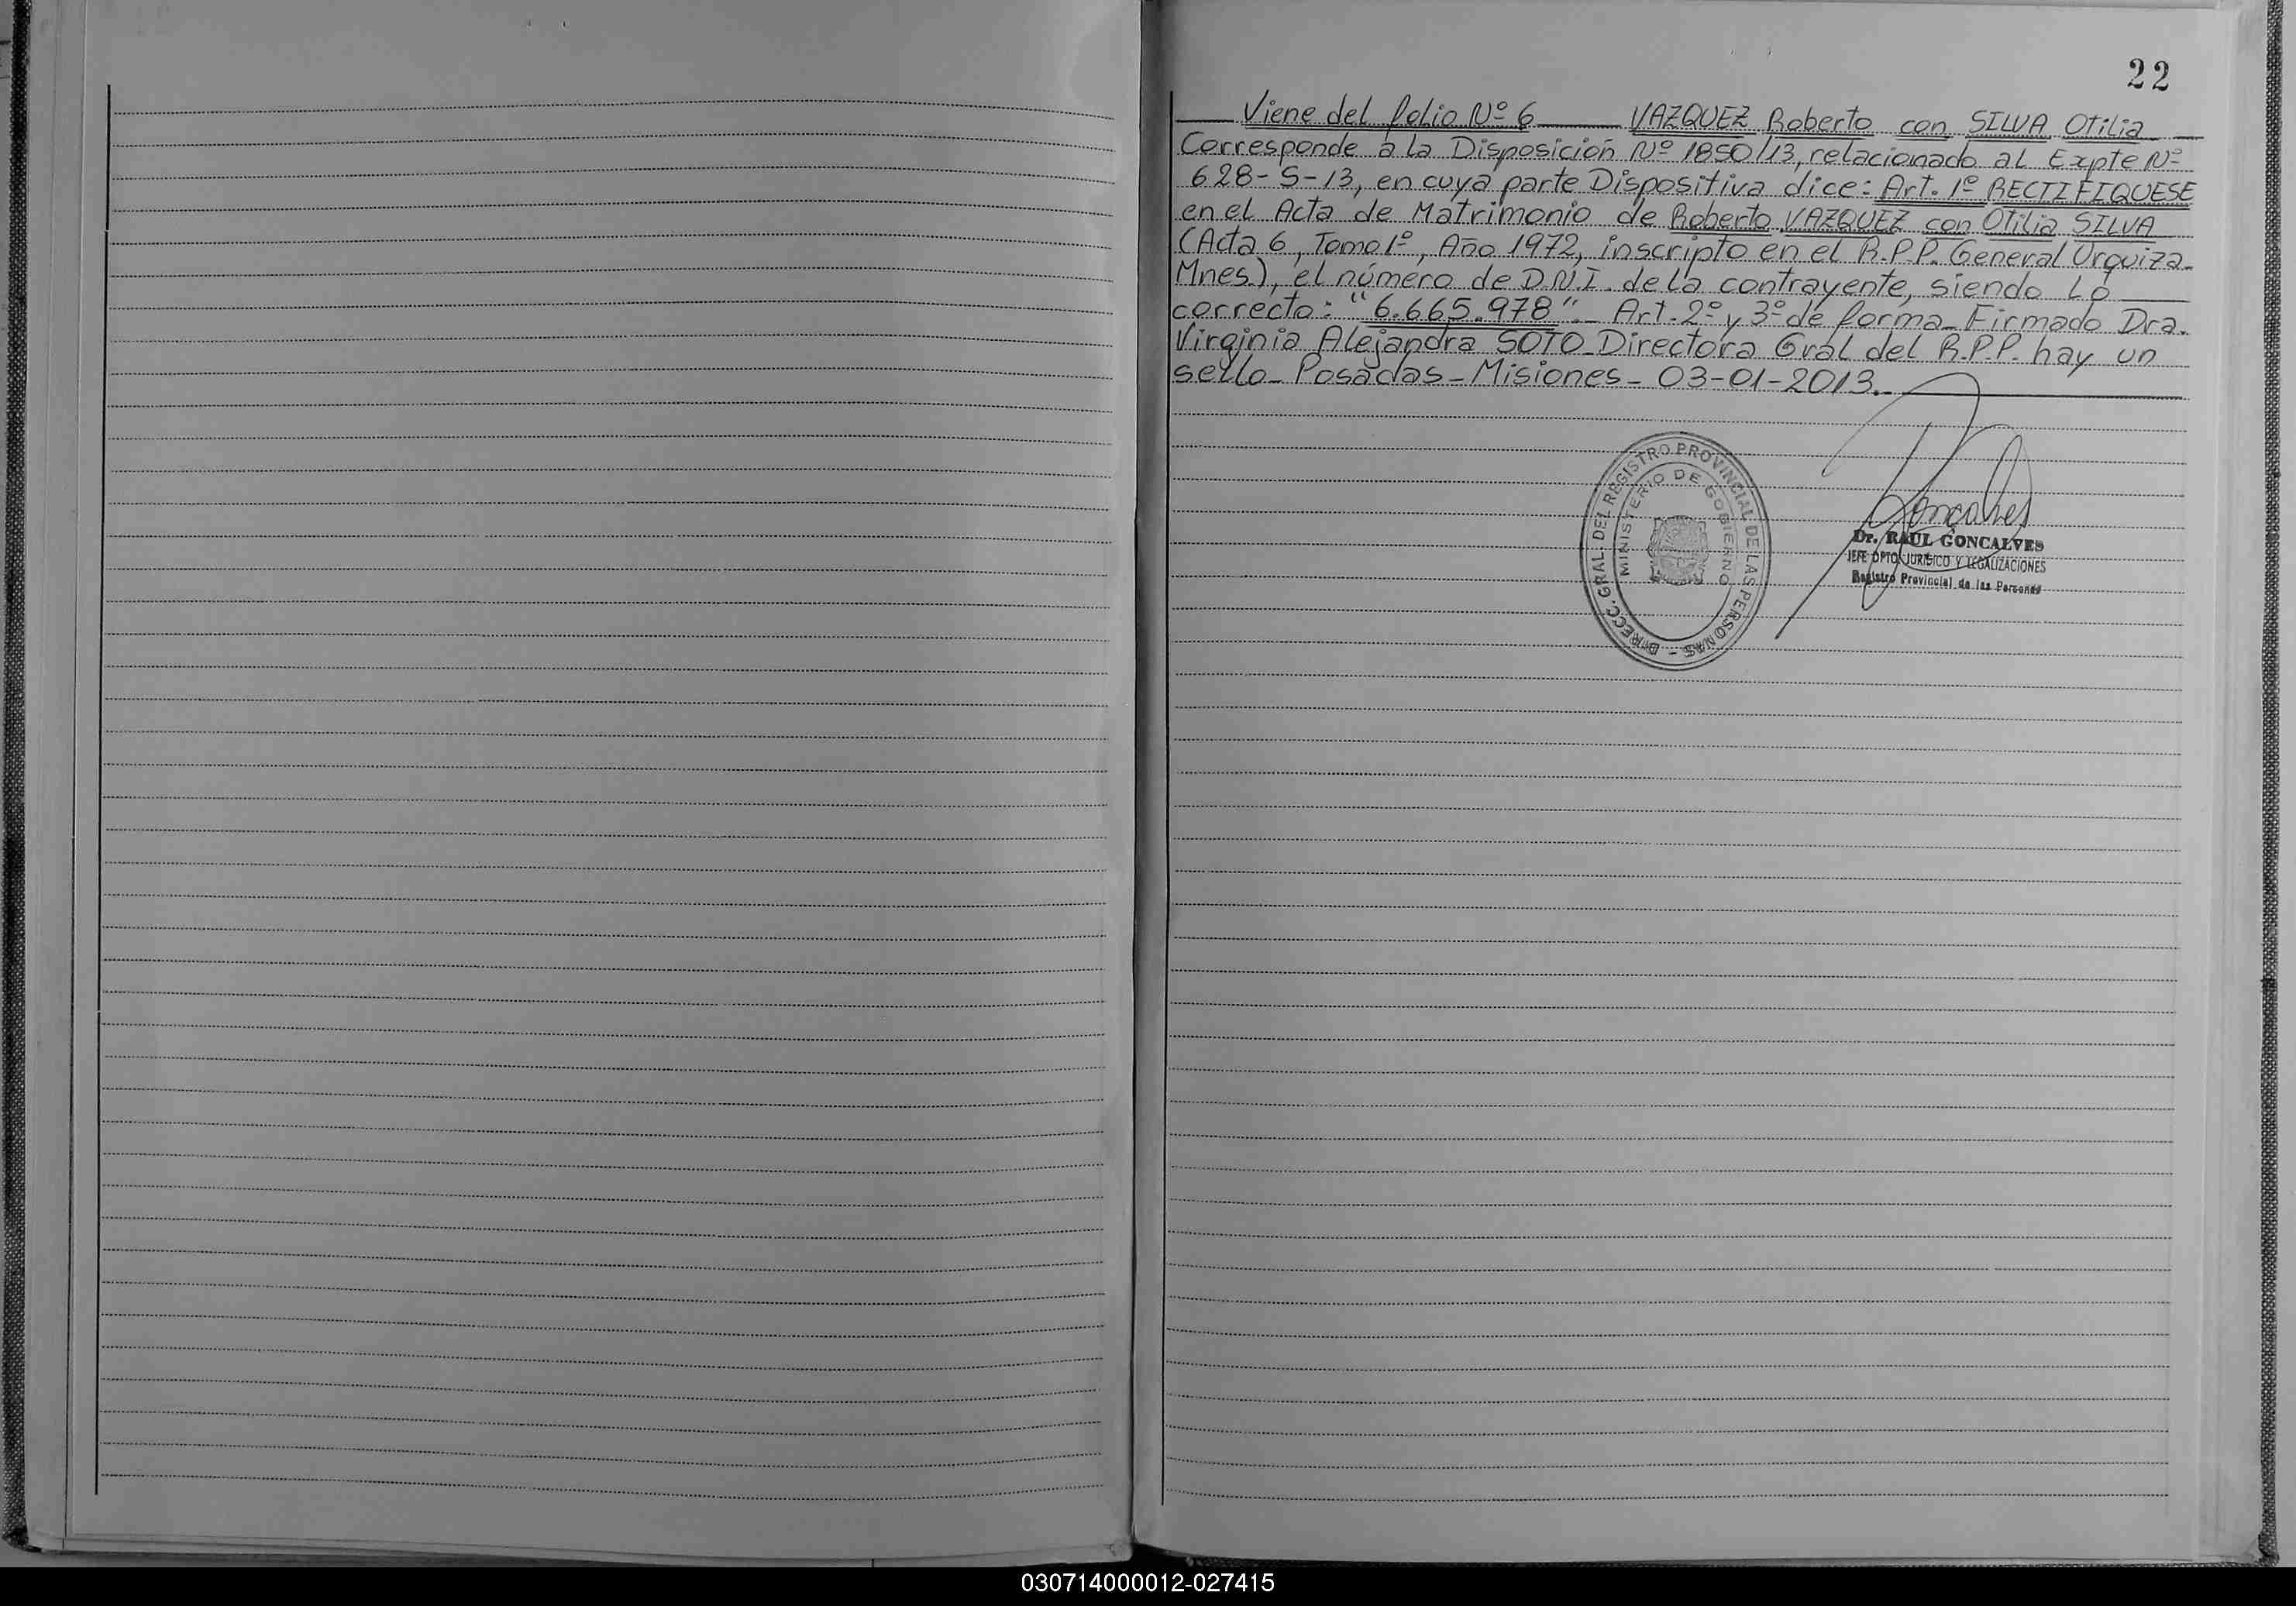 22
Viene del folio Nº 6 VAZQUEZ Roberto con SILVA Otilia
Corresponde a la Disposición Nº 1850/13, relacionado al Expte Nº
628-S-13, en cuya parte Dispositiva dice: Art. 1º RECTIFIQUESE
en el Acta de Matrimonio de Roberto VAZQUEZ con Otilia SILVA
(Acta 6, Tomo 1º, Año 1972, inscripto en el R.P.P. General Urquiza-
Mnes.), el número de D.N.I. de la contrayente, siendo Lo
correcto: "6.665.978".- Art. 2º y 3º de forma- Firmado Dra.
Virginia Alejandra SOTO- Directora Gral del R.P.P. hay un
sello- Posadas- Misiones- 03-01-2013.-
DIRECC. GRAL. DEL REGISTRO PROVINCIAL DE LAS PERSONAS -
MINISTERIO DE GOBIERNO
Goncalves
Dr. RAUL GONCALVES
JEFE DPTO. JURIDICO Y LEGALIZACIONES
Registro Provincial de las Personas
030714000012-027415